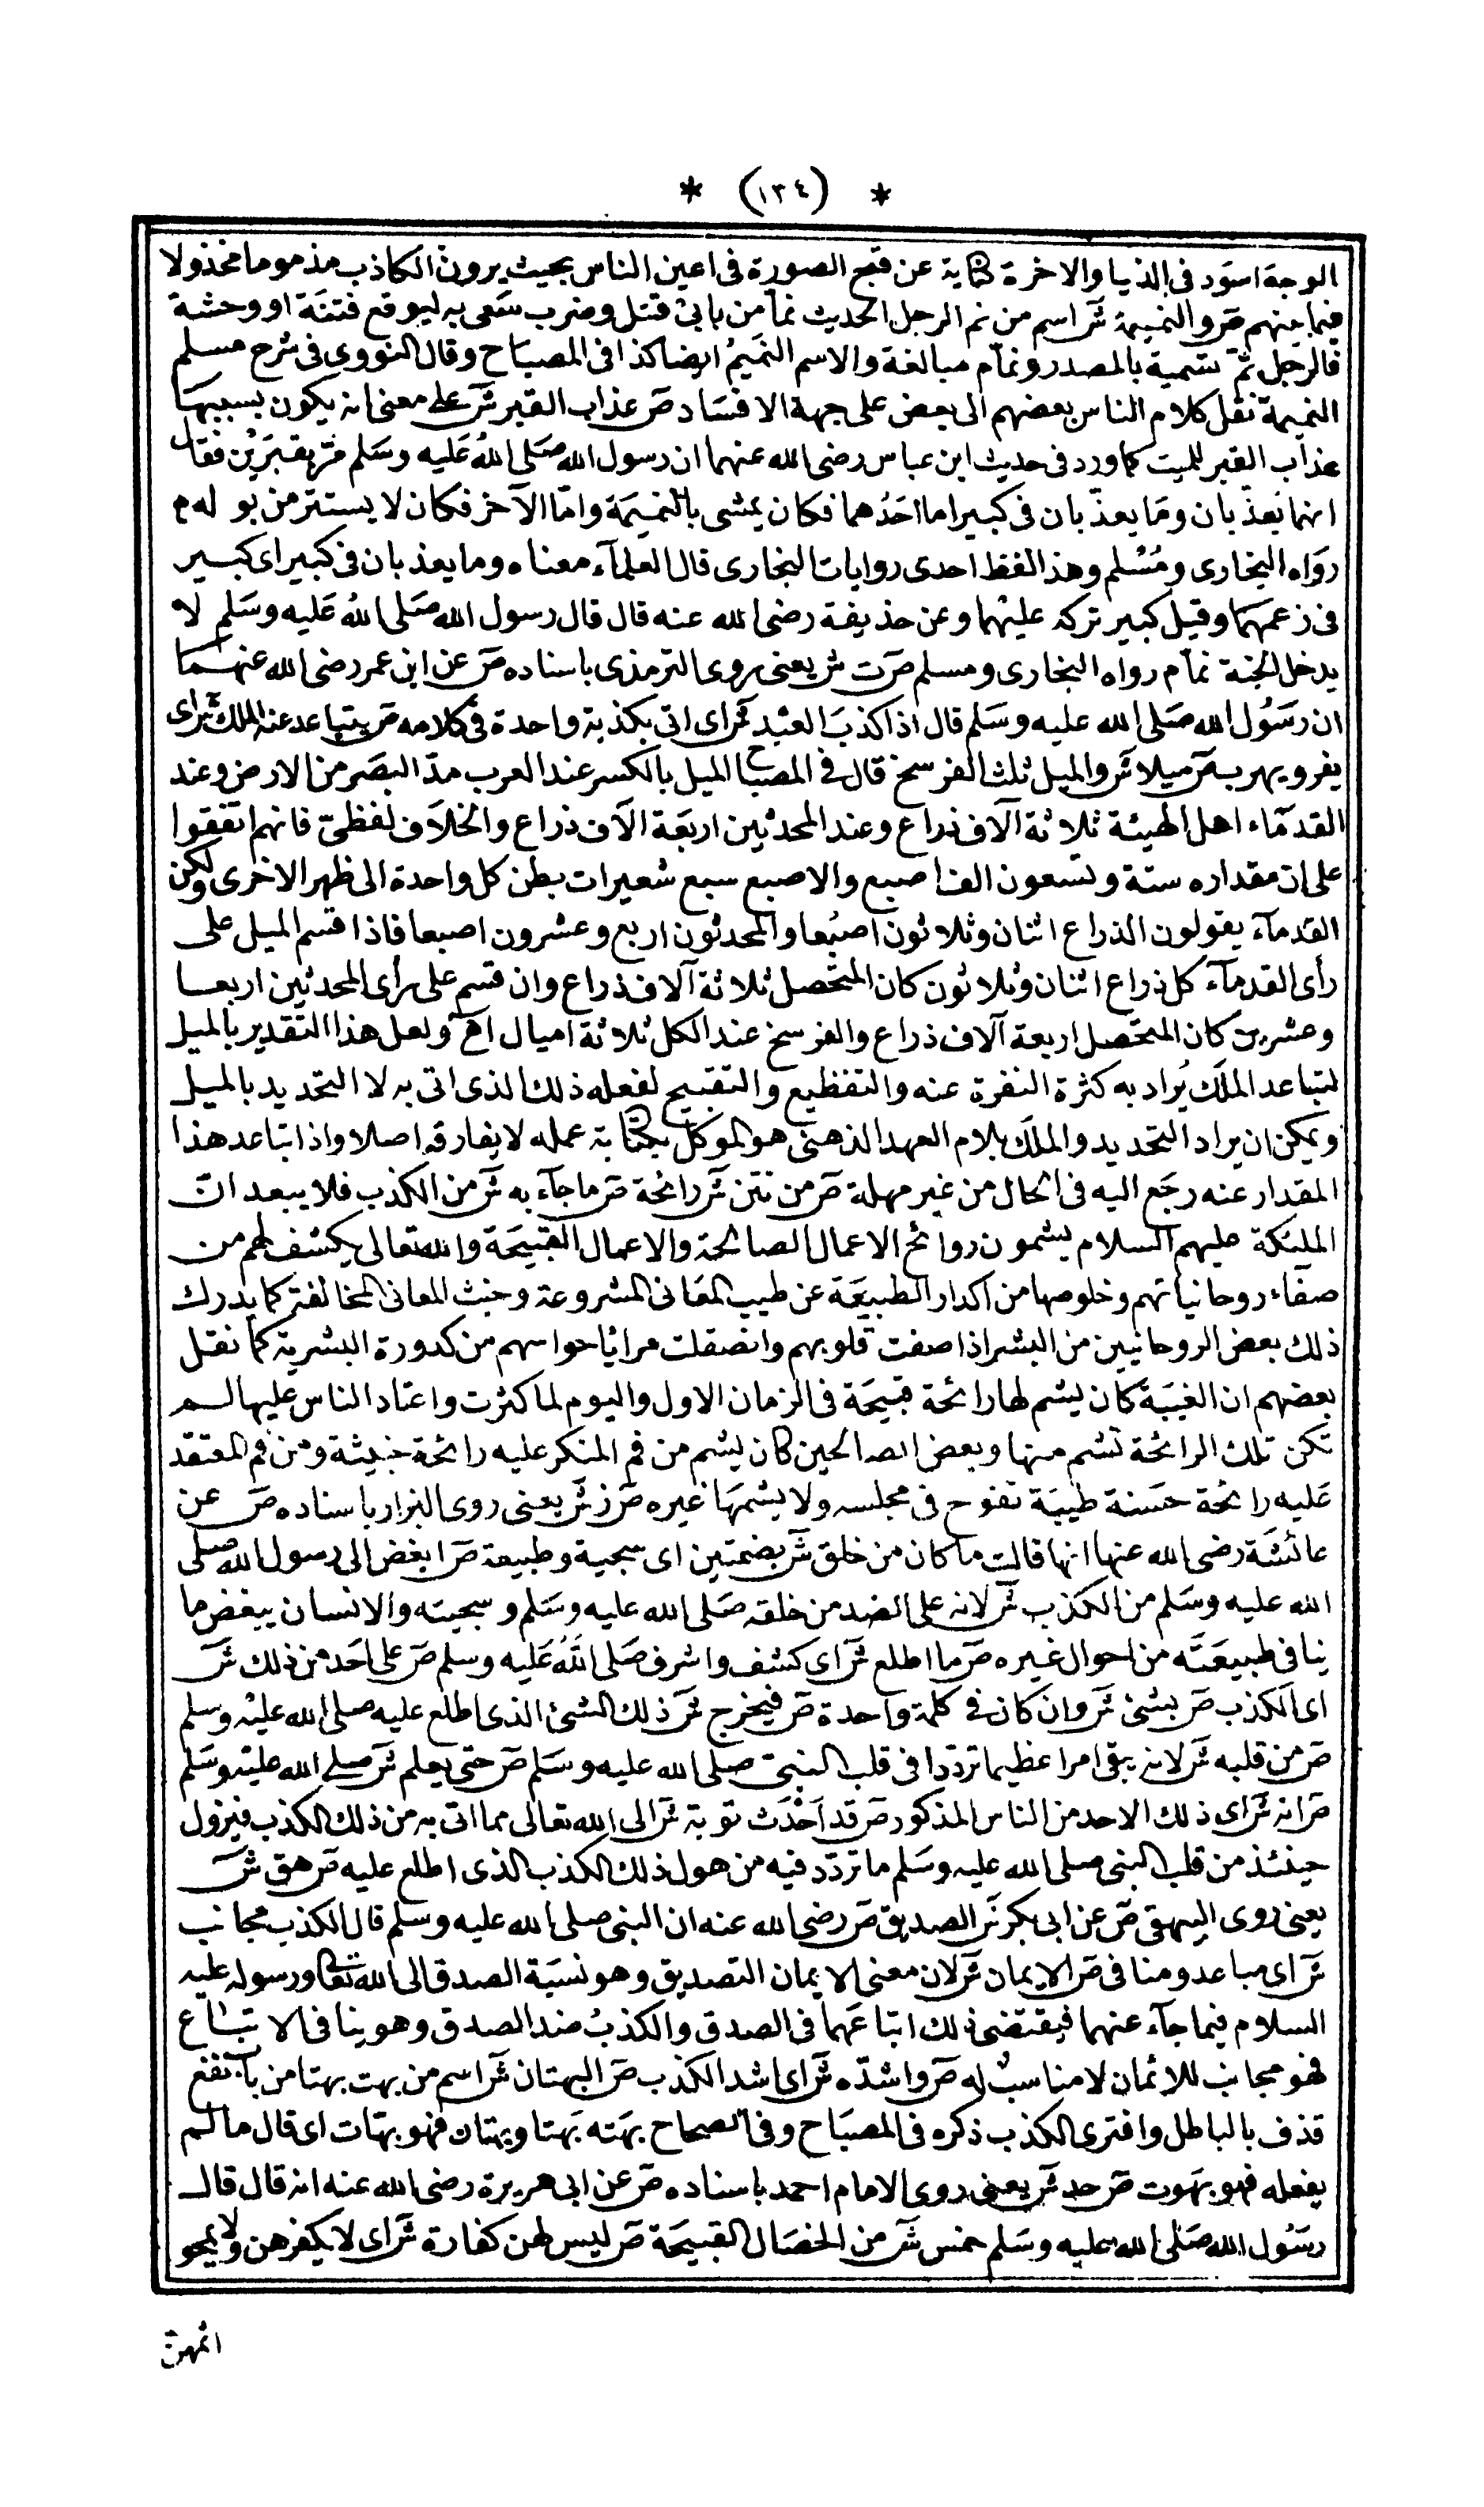 * (١٣٤) *
الوجه اسود فى الدنيا والاخرة كناية عن قبح الصورة فى اعين الناس بحيث يرون الكاذب مذموما مخذولا
فيما بينهم صر والنميمة شر اسم من نم الرجل الحديث نما من بابى قتل وضرب سعى به ليوقع فتنة او وحشة
فالرجل نم تسمية بالمصدر ونمام مبالغة والاسم النميم ايضا كذا فى المصباح وقال النووى فى شرح مسلم
النميمة نقل كلام الناس بعضهم الى بعض على جهة الافساد صر عذاب القبر شر على معنى انه يكون بسببها
عذاب القبر للميت كما ورد فى حديث ابن عباس رضى الله عنهما ان رسول الله صلى الله عليه وسلم مر بقبرين فقال
انهما يعذبان وما يعذبان فى كبير اما احدهما فكان يمشى بالنميمة واما الآخر فكان لا يستتر من بوله م
رواه البخارى ومسلم وهذا لفظ احدى روايات البخارى قال العلماء معناه وما يعذبان فى كبير اى كبير
فى زعمهما وقيل كبير تركه عليهما وعن حذيفة رضى الله عنه قال قال رسول الله صلى الله عليه وسلم لا
يدخل الجنة نمام رواه البخارى ومسلم صر ت شر يعنى روى الترمذى باسناده صر عن ابن عمر رضى الله عنهما
ان رسول الله صلى الله عليه وسلم قال اذا كذب العبد شر اى اتى بكذبة واحدة فى كلامه صر يتباعد عنه الملك شر اى
يفر ويهرب صر ميلا شر والميل ثلث الفرسخ قال فى المصباح الميل بالكسر عند العرب مد البصر من الارض وعند
القدماء اهل الهيئة ثلاثة آلاف ذراع وعند المحدثين اربعة آلاف ذراع والخلاف لفظى فانهم اتفقوا
على ان مقداره ستة وتسعون الف اصبع والاصبع سبع شعيرات بطن كل واحدة الى ظهر الاخرى ولكن
القدماء يقولون الذراع اثنان وثلاثون اصبعا والمحدثون اربع وعشرون اصبعا فاذا قسم الميل على
رأى القدماء كل ذراع اثنان وثلاثون كان المتحصل ثلاثة آلاف ذراع وان قسم على رأى المحدثين اربعا
وعشرين كان المتحصل اربعة آلاف ذراع والفرسخ عند الكل ثلاثة اميال اهـ ولعل هذا التقدير بالميل
لتباعد الملك يراد به كثرة النفرة عنه والتفظيع والتقبيح لفعله ذلك الذى اتى به لا التحديد بالميل
ويمكن ان يراد التحديد والملك بلام العهد الذهنى هو الموكل بكتابة عمله لا يفارقه اصلا واذا تباعد هذا
المقدار عنه رجع اليه فى الحال من غير مهلة صر من نتن شر رائحة صر ما جاء به شر من الكذب فلا يبعد ان
الملئكة عليهم السلام يشمون روائح الاعمال الصالحة والاعمال القبيحة والله تعالى يكشف لهم من
صفاء روحانياتهم وخلوصها من اكدار الطبيعة عن طيب المعانى المشروعة وخبث المعانى المخالفة كما يدرك
ذلك بعض الروحانيين من البشر اذا صفت قلوبهم وانصقلت مرايا حواسهم من كدورة البشرية كما نقل
بعضهم ان الغيبة كان يشم لها رائحة قبيحة فى الزمان الاول واليوم لما كثرت واعتاد الناس عليها لم
تكن تلك الرائحة تشم منها وبعض الصالحين كان يشم من فم المنكر عليه رائحة خبيثة ومن فم المعتقد
عليه رائحة حسنة طيبة تفوح فى مجلسه ولا يشمها غيره صر ز شر يعنى روى البزار باسناده صر عن
عائشة رضى الله عنها انها قالت ما كان من خلق شر بضمتين اى سجية وطبيعة صر ابغض الى رسول الله صلى
الله عليه وسلم من الكذب شر لانه على الضد من خلقه صلى الله عليه وسلم وسجيته والانسان يبغض ما
ينافى طبيعته من احوال غيره صر ما اطلع شر اى كشف واشرف صلى الله عليه وسلم صر على احد من ذلك شر
اى الكذب صر بشئ شر وان كان فى كلمة واحدة صر فيخرج شر ذلك الشئ الذى اطلع عليه صلى الله عليه وسلم
صر من قلبه شر لانه يبقى امرا عظيما ترددا فى قلب النبى صلى الله عليه وسلم صر حتى يعلم شر صلى الله عليه وسلم
صر انه شر اى ذلك الاحد من الناس المذكور صر قد احدث توبة شر الى الله تعالى مما اتى به من ذلك الكذب فيزول
حينئذ من قلب النبى صلى الله عليه وسلم ما تردد فيه من هول ذلك الكذب الذى اطلع عليه صر هق شر
يعنى روى البيهقى صر عن ابى بكر شر الصديق صر رضى الله عنه ان النبى صلى الله عليه وسلم قال الكذب مجانب
شر اى مباعد ومناف صر الايمان شر لان معنى الايمان التصديق وهو نسبة الصدق الى الله تعالى ورسوله عليه
السلام فيما جاء عنهما فيقتضى ذلك اتباعهما فى الصدق والكذب ضد الصدق وهو ينافى الاتباع
فهو مجانب للايمان لا مناسب له صر واشده شر اى اشد الكذب صر البهتان شر اسم من بهت بهتا من باب نفع
قذف بالباطل وافترى الكذب ذكره فى المصباح وفى الصحاح بهته بهتا وبهتان فهو بهات اى قال ما لم
يفعله فهو بهوت صر حد شر يعنى روى الامام احمد باسناده صر عن ابى هريرة رضى الله عنه انه قال قال
رسول الله صلى الله عليه وسلم خمس شر من الخصال القبيحة صر ليس لهن كفارة شر اى لا يكفرهن ولا يمحو
اثمهن